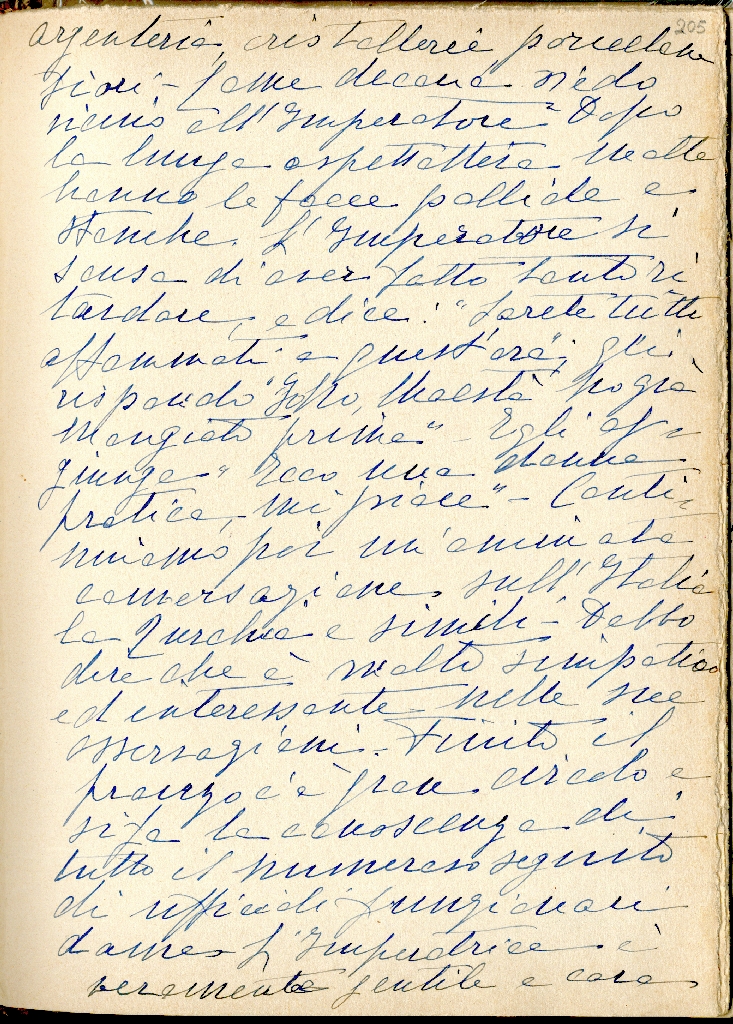 205
argenterie, cristallerie porcellane
fiori – Come decana siedo
vicino all'Imperatore – Dopo
la lunga aspettativa molte
hanno le facce pallide e
stanche. L'Imperatore si
scusa di aver fatto tanto ri
tardare, e dice: "Sarete tutti
affamati a quest'ora", gli
rispondo Maestà ho già
mangiato prima" – Egli ag-
giunge "Ecco una donna
pratica, mi piace" – Conti-
nuiamo poi un'animata
conversazione sull'Italia
la Turchia e simili – Debbo
dire che è molto simpatico
ed interessante nelle sue
osservazioni. – Finito il
pranzo c'è gran circolo e
si fa la conoscenza di
tutto il numeroso seguito
di ufficiali funzionari
dame – L'Imperatrice è
veramente gentile e cara